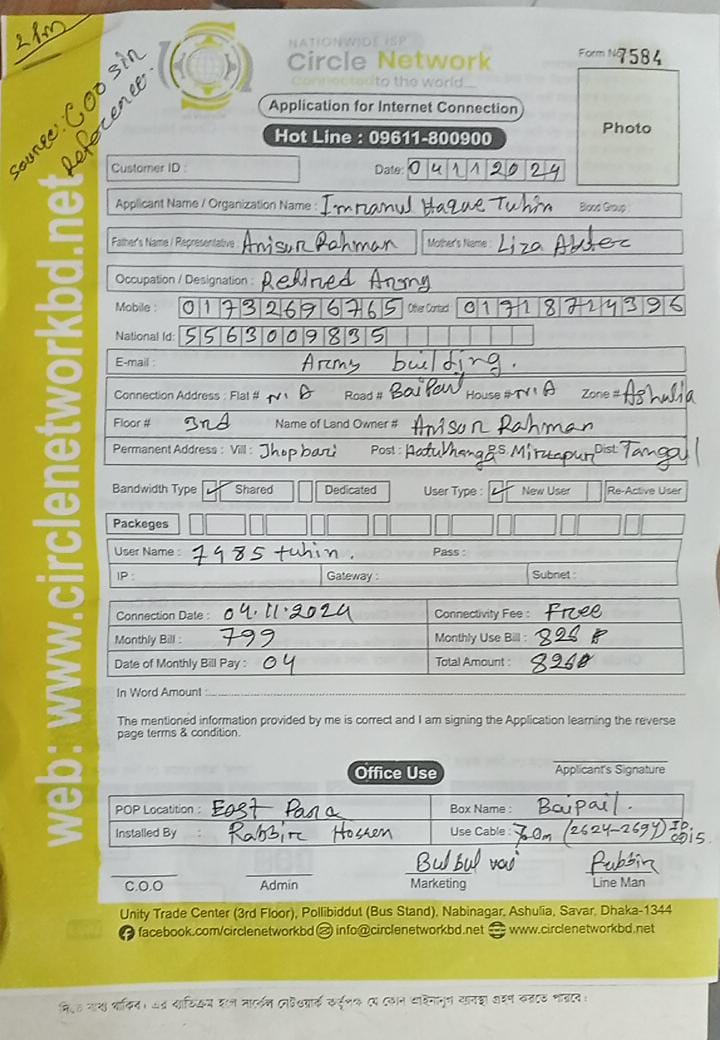 2 Pm
Source: COO sir
Reference.
NATIONWIDE ISP
Circle Network
Connected to the world...
Form No 7584
Application for Internet Connection
Photo
Hot Line : 09611-800900
Customer ID :
Date: 04112024
Applicant Name / Organization Name : Imranul Haque Tuhin Blood Group :
Father's Name / Representative : Anisur Rahman Mother's Name : Liza Akter
Occupation / Designation : Retired Army
Mobile : 01732696765 Other Contact 01718714396
National Id: 5563009835
E-mail : Army building.
Connection Address : Flat # N/A Road # Baipail House # N/A Zone # Ashulia
Floor # 3rd Name of Land Owner # Anisur Rahman
Permanent Address : Vill : Jhopbari Post : P.S. Mirzapur Dist: Tangail
Bandwidth Type ✓ Shared Dedicated User Type : ✓ New User Re-Active User
Packeges
User Name : 7485 tuhin. Pass :
IP : Gateway : Subnet :
Connection Date : 04.11.2024 Connectivity Fee : Free
Monthly Bill : 799 Monthly Use Bill : 826
Date of Monthly Bill Pay : 04 Total Amount : 826
In Word Amount :
The mentioned information provided by me is correct and I am signing the Application learning the reverse
page terms & condition.
Applicant's Signature
Office Use
POP Locatition : East Para Box Name : Baipail.
Installed By : Rabbir Hossen Use Cable : 70m (2624-2694)
Bulbul vai Rubbin
C.O.O Admin Marketing Line Man
Unity Trade Center (3rd Floor), Pollibiddut (Bus Stand), Nabinagar, Ashulia, Savar, Dhaka-1344
facebook.com/circlenetworkbd info@circlenetworkbd.net www.circlenetworkbd.net
web: www.circlenetworkbd.net
বাধ্য থাকিব। এর ব্যতিক্রম হলে সার্কেল নেটওয়ার্ক কর্তৃপক্ষ যে কোন আইনানুগ ব্যবস্থা গ্রহণ করতে পারবে।